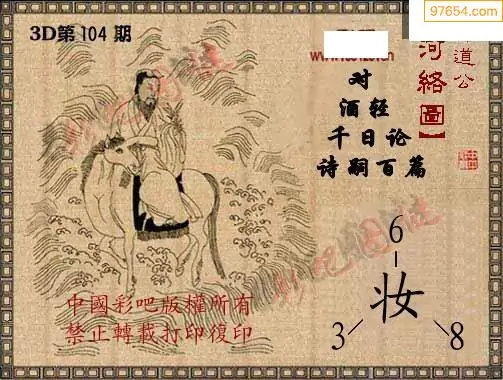 97654.com
3D第104期
www.
道公
河絡圖】
对
酒轻
千日论
诗嗣百篇
彩吧圖謎
彩吧圖謎
6
妆
3
8
中國彩吧版權所有
禁止轉載打印復印